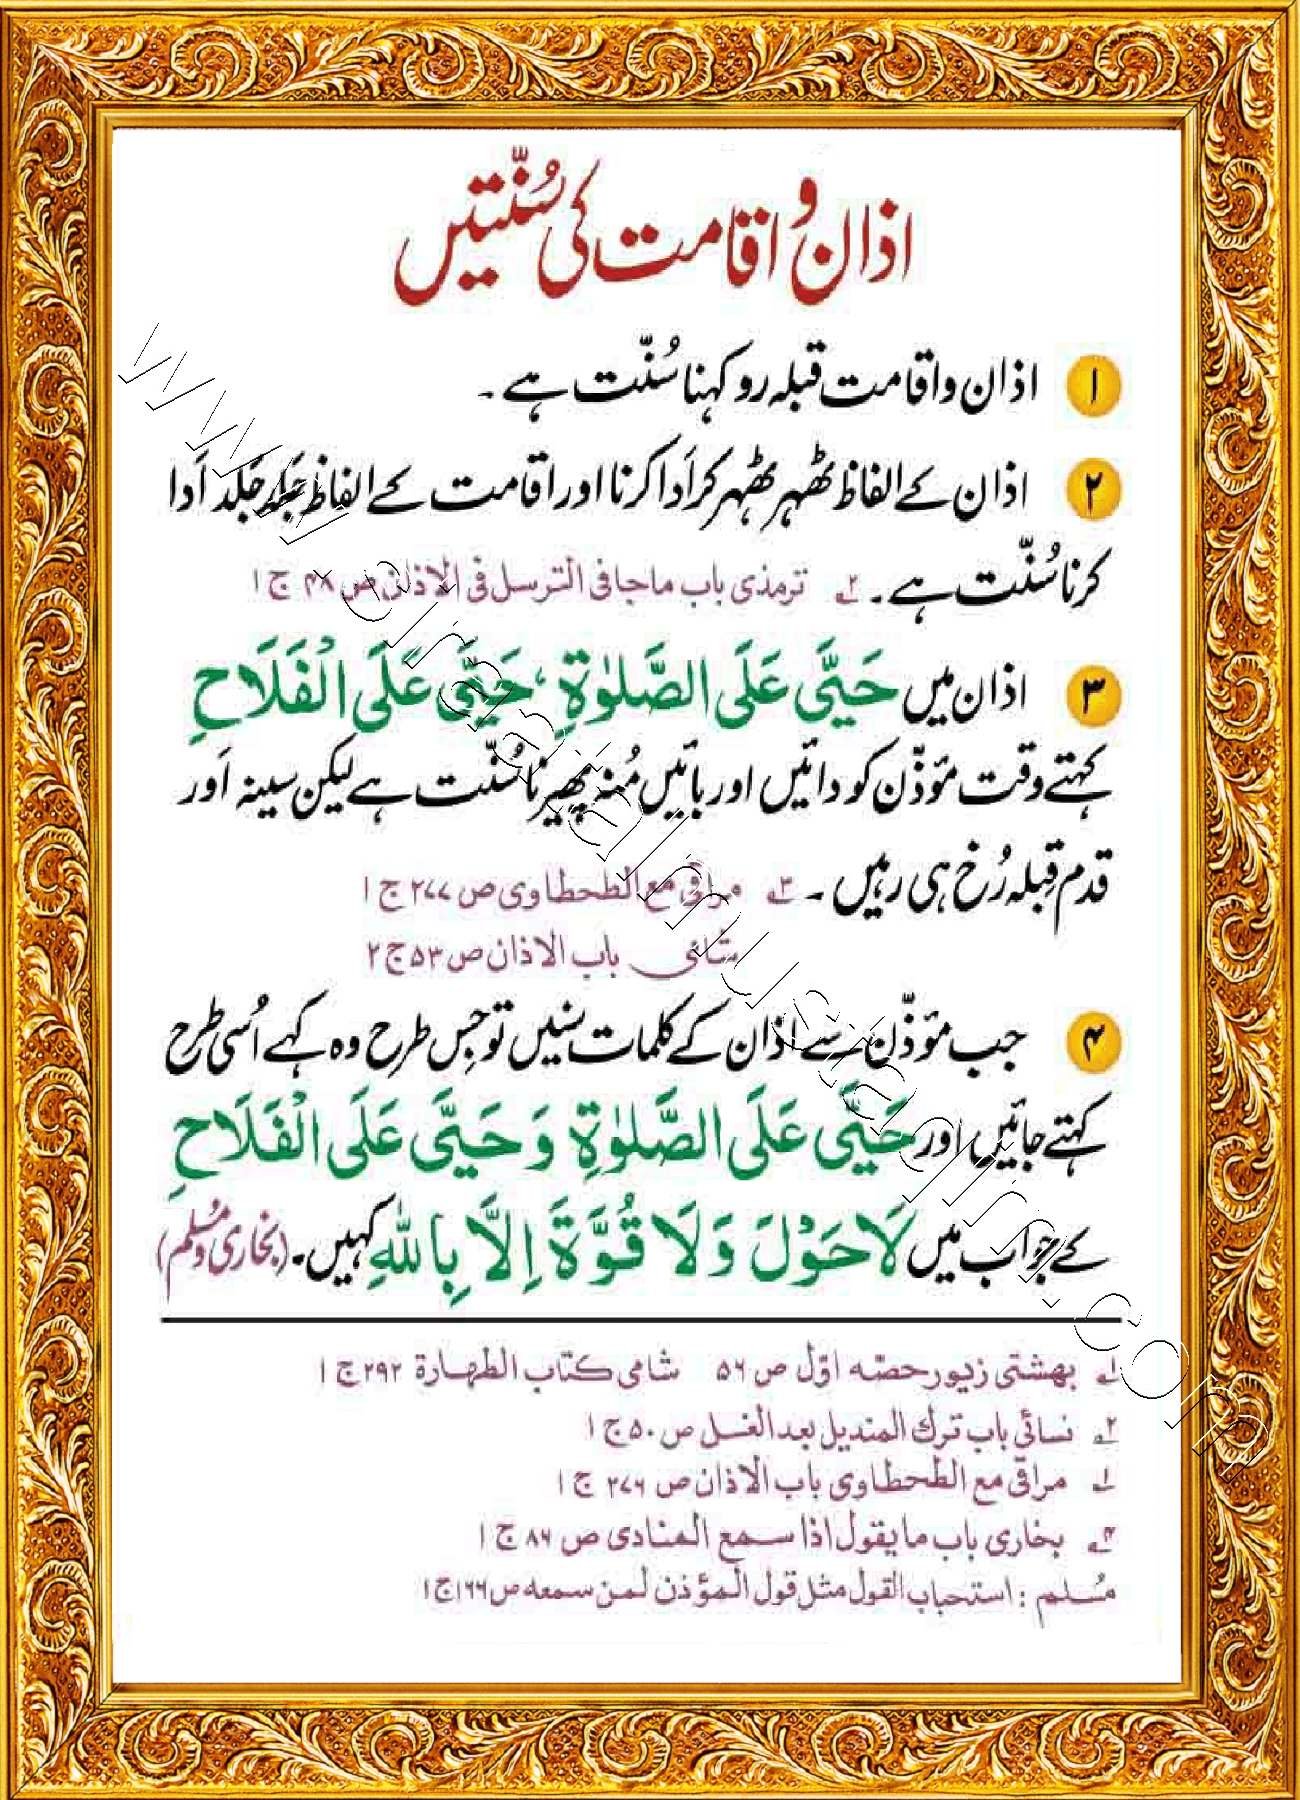 اذان و اقامت کی سُنّتیں
۱ اذان و اقامت قبلہ رو کہنا سُنّت ہے۔
۲ اذان کے الفاظ ٹھہر ٹھہر کر اَدا کرنا اور اقامت کے الفاظ جَلد جَلد اَدا
کرنا سُنّت ہے۔ ۲ ترمذی باب ماجا فی الترسل فی الاذان ص ۴۸ ج ۱
۳ اذان میں حَیَّ عَلَی الصَّلٰوةِ، حَیَّ عَلَی الْفَلَاحِ
کہتے وقت مؤذّن کو دائیں اور بائیں مُنہ پھیرنا سُنّت ہے لیکن سینہ اَور
قدم قبلہ رُخ ہی رہیں۔ ۳ مراقی مع الطحطاوی ص ۲۷۷ ج ۱
شامی باب الاذان ص ۵۳ ج ۲
۴ جب مؤذّن سے اذان کے کلمات سنیں تو جس طرح وہ کہے اُسی طرح
کہتے جائیں اور حَیَّ عَلَی الصَّلٰوةِ وَ حَیَّ عَلَی الْفَلَاحِ
کے جواب میں لَا حَوْلَ وَلَا قُوَّةَ اِلَّا بِاللّٰهِ کہیں۔ (بخاری و مُسلم)
۱ بهشتی زیور حصّه اوّل ص ۵۶ شامی کتاب الطهارة ۲۹۲ ج ۱
۲ نسائی باب ترك المندیل بعد الغسل ص ۵۰ ج ۱
۱ مراقی مع الطحطاوی باب الاذان ص ۲۷۶ ج ۱
۴ بخاری باب ما یقول اذا سمع المنادی ص ۸۶ ج ۱
مُسلم : استحباب القول مثل قول المؤذن لمن سمعه ص ۱۶۶ ج ۱